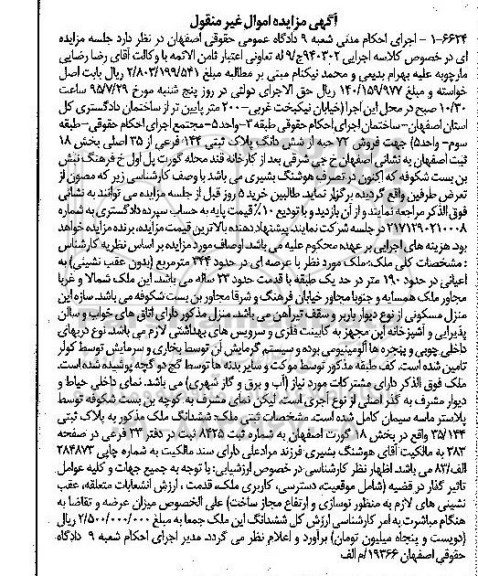 آگهی مزایده اموال غیر منقول
۱-۶۶۲۴ - اجرای احکام مدنی شعبه ۹ دادگاه عمومی حقوقی اصفهان در نظر دارد جلسه مزایده
ای در خصوص کلاسه اجرایی ۹۴۰۳۰۲ج/۹ له تعاونی اعتبار ثامن الائمه با وکالت آقای رضا رضایی
مارچوبه علیه بهرام بدیعی و محمد نیکنام مبنی بر مطالبه مبلغ ۲/۸۰۳/۱۹۹/۵۴۱ ریال بابت اصل
خواسته و مبلغ ۱۴۰/۱۵۹/۹۷۷ ریال حق الاجرای دولتی در روز پنج شنبه مورخ ۹۵/۷/۲۹ ساعت
۱۰/۳۰ صبح در محل این اجرا (خیابان نیکبخت غربی-۲۰۰ متر پایین تر از ساختمان دادگستری کل
استان اصفهان-ساختمان اجرای احکام حقوقی طبقه ۳-واحد۵-مجتمع اجرای احکام حقوقی-طبقه
سوم- واحد۵) جهت فروش ۷۲ حبه از شش دانگ پلاک ثبتی ۱۴۴ فرعی از ۳۵ اصلی بخش ۱۸
ثبت اصفهان به نشانی اصفهان خ جی شرقی بعد از کارخانه قند محله گورت پل اول خ فرهنگ نبش
بن بست شکوفه که اکنون در تصرف هوشنگ بشیری می باشد با وصف کارشناسی زیر که مصون از
تعرض طرفین واقع گردیده برگزار نماید. طالبین خرید ۵ روز قبل از جلسه مزایده می توانند به نشانی
فوق الذکر مراجعه نمایند و از آن بازدید و با تودیع ۱۰٪ قیمت پایه به حساب سپرده دادگستری به شماره
۲۱۷۱۲۹۰۲۱۰۰۰۸ در جلسه شرکت نمایند. پیشنهاد دهنده بالاترین قیمت مزایده، برنده مزایده خواهد
بود. هزینه های اجرایی بر عهده محکوم علیه می باشد. اوصاف مورد مزایده بر اساس نظریه کارشناس
: مشخصات کلی ملک:ملک مورد نظر با عرصه ای در حدود ۳۴۴ مترمربع (بدون عقب نشینی) به
اعیانی در حدود ۱۹۰ متر در حد یک طبقه با قدمت حدود ۲۳ ساله می باشد. این ملک شمالا و غربا
مجاور ملک همسایه و جنوبا مجاور خیابان فرهنگ و شرقا مجاور بن بست شکوفه می باشد. سازه این
منزل مسکونی از نوع دیوار باربر و سقف تیرآهن می باشد. منزل مذکور دارای اتاق های خواب و سالن
پذیرایی و آشپزخانه این مجهز به کابینت فلزی و سرویس های بهداشتی لازم می باشد. نوع دربهای
داخلی چوبی و پنجره ها آلومینیومی بوده و سیستم گرمایش آن توسط بخاری و سرمایش توسط کولر
تامین شده است. کف طبقه مذکور توسط موکت و سایر بدنه ها توسط گچ دو گچه پوشیده شده است.
ملک فوق الذکر دارای مشترکات مورد نیاز (آب و برق و گاز شهری) می باشد. نمای داخلی حیاط و
دیوار مشرف به گذر اصلی از نوع آجری است. لیکن نمای مشرف به کوچه بن بست شکوفه توسط
پلاستر ماسه سیمان کامل شده است. مشخصات ثبتی ملک: ششدانگ ملک مذکور به پلاک ثبتی
۳۵/۱۴۴ واقع در بخش ۱۸ گورت اصفهان به شماره ثبت ۸۴۲۵ ثبت در دفتر ۳۳ فرعی در صفحه
۳۸۳ به مالکیت آقای هوشنگ بشیری فرزند مرادعلی دارای سند مالکیت به شماره چاپی ۲۸۴۸۷۳
الف/۸۳ می باشد. اظهار نظر کارشناسی در خصوص ارزشیابی: با توجه به جمیع جهات و کلیه عوامل
تاثیر گذار در قضیه (شامل موقعیت، دسترسی، کاربری ملک، قدمت ، ارزش انشعابات متعلقه، عقب
نشینی های لازم به منظور نوسازی و ارتفاع مجاز ساخت) علی الخصوص میزان عرضه و تقاضا به
هنگام مباشرت به امر کارشناسی ارزش کل ششدانگ این ملک جمعا به مبلغ ۲/۵۰۰/۰۰۰/۰۰۰ ریال
(دویست و پنجاه میلیون تومان) برآورد و اعلام نظر می گردد. مدیر اجرای احکام شعبه ۹ دادگاه
حقوقی اصفهان ۱۹۳۶۶/م الف